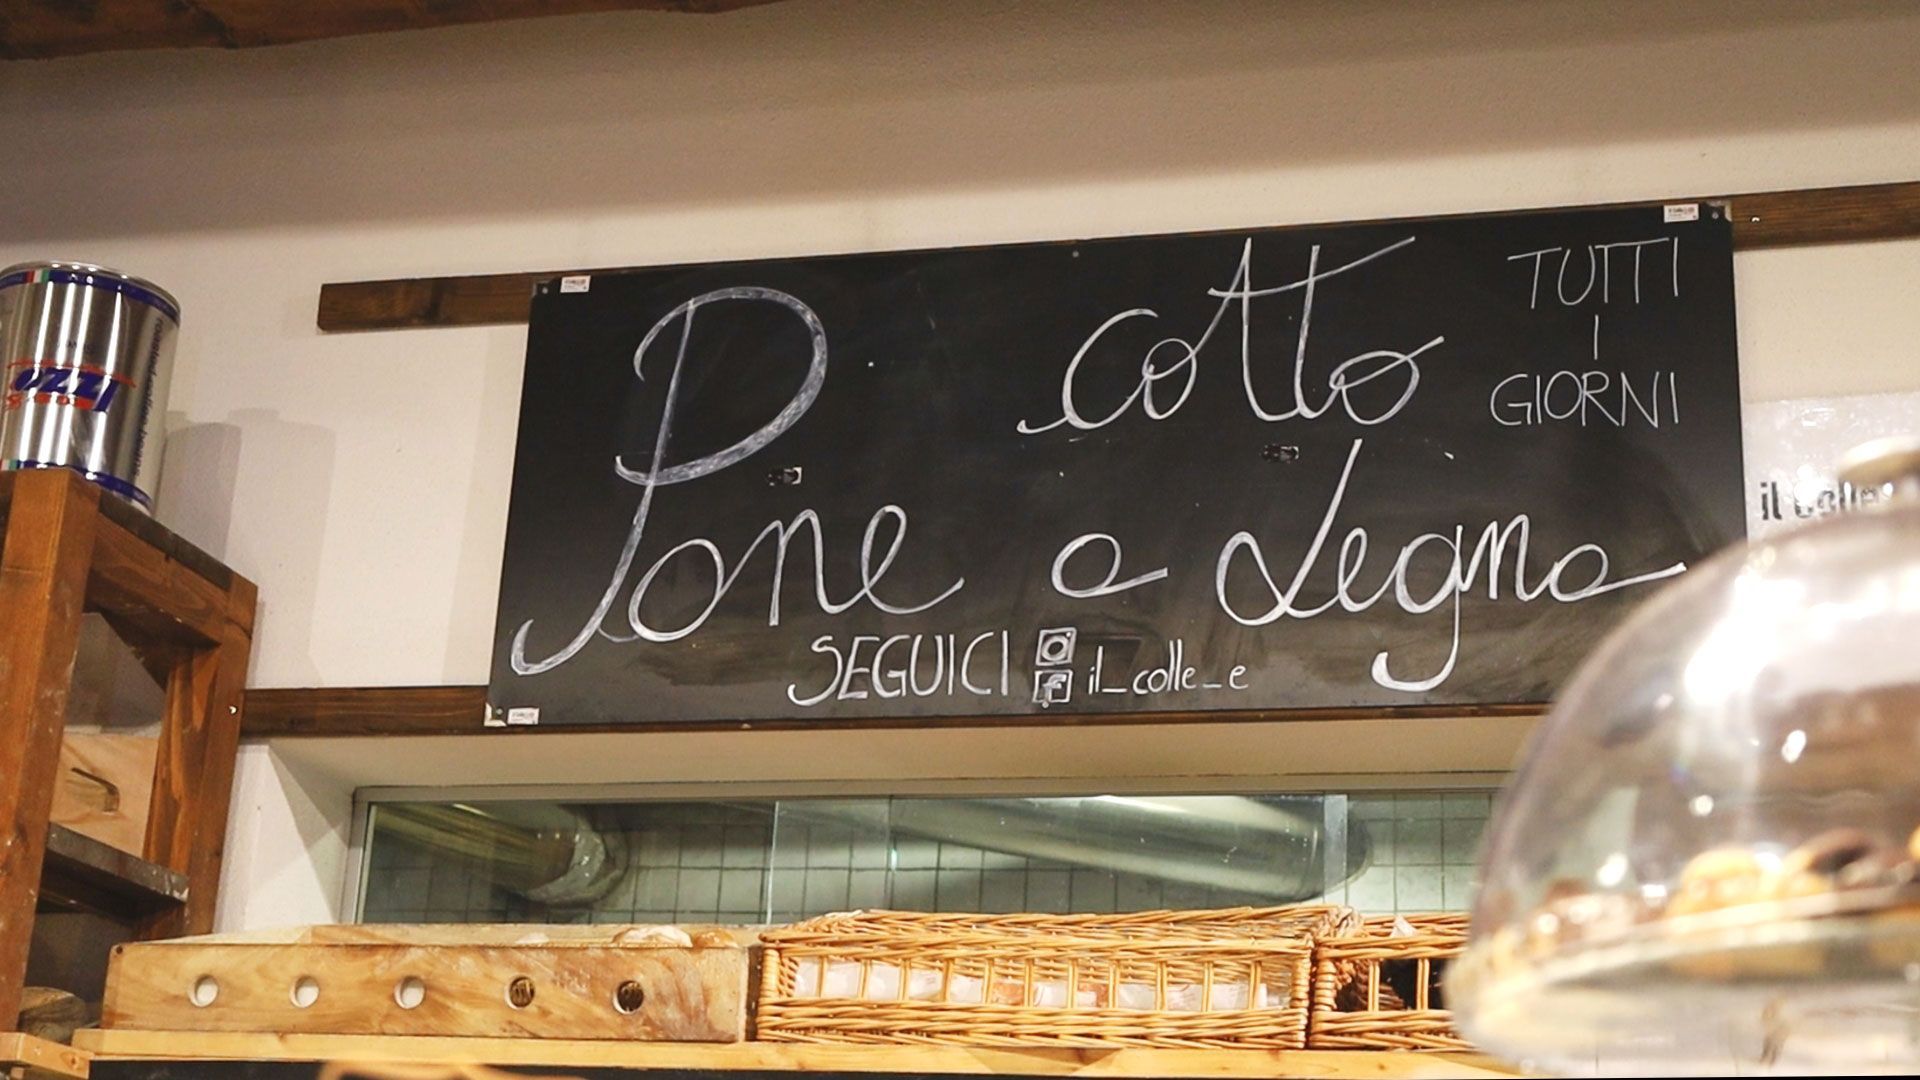 Pane cotto a Legna
TUTTI
I
GIORNI
SEGUICI il_colle_e
il colle
OZZI